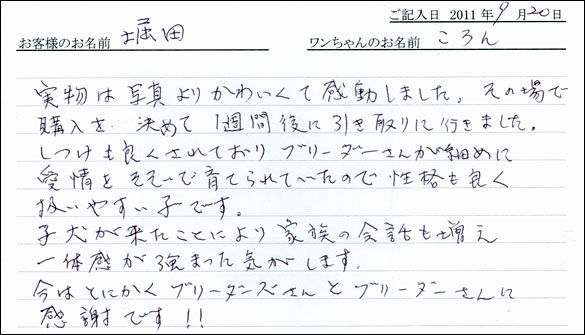 ご記入日 2011年9月20日
お客様のお名前 堀田 ワンちゃんのお名前 ころん
実物は写真よりかわいくて感動しました。その場で
購入を決めて1週間後に引き取りに行きました。
しつけも良くされておりブリーダーさんが細めに
愛情をそそいで育てられていたので性格も良く
扱いやすい子です。
子犬が来たことにより家族の会話も増え
一体感が強まった気がします。
今はとにかくブリーダーズさんとブリーダーさんに
感謝です!!